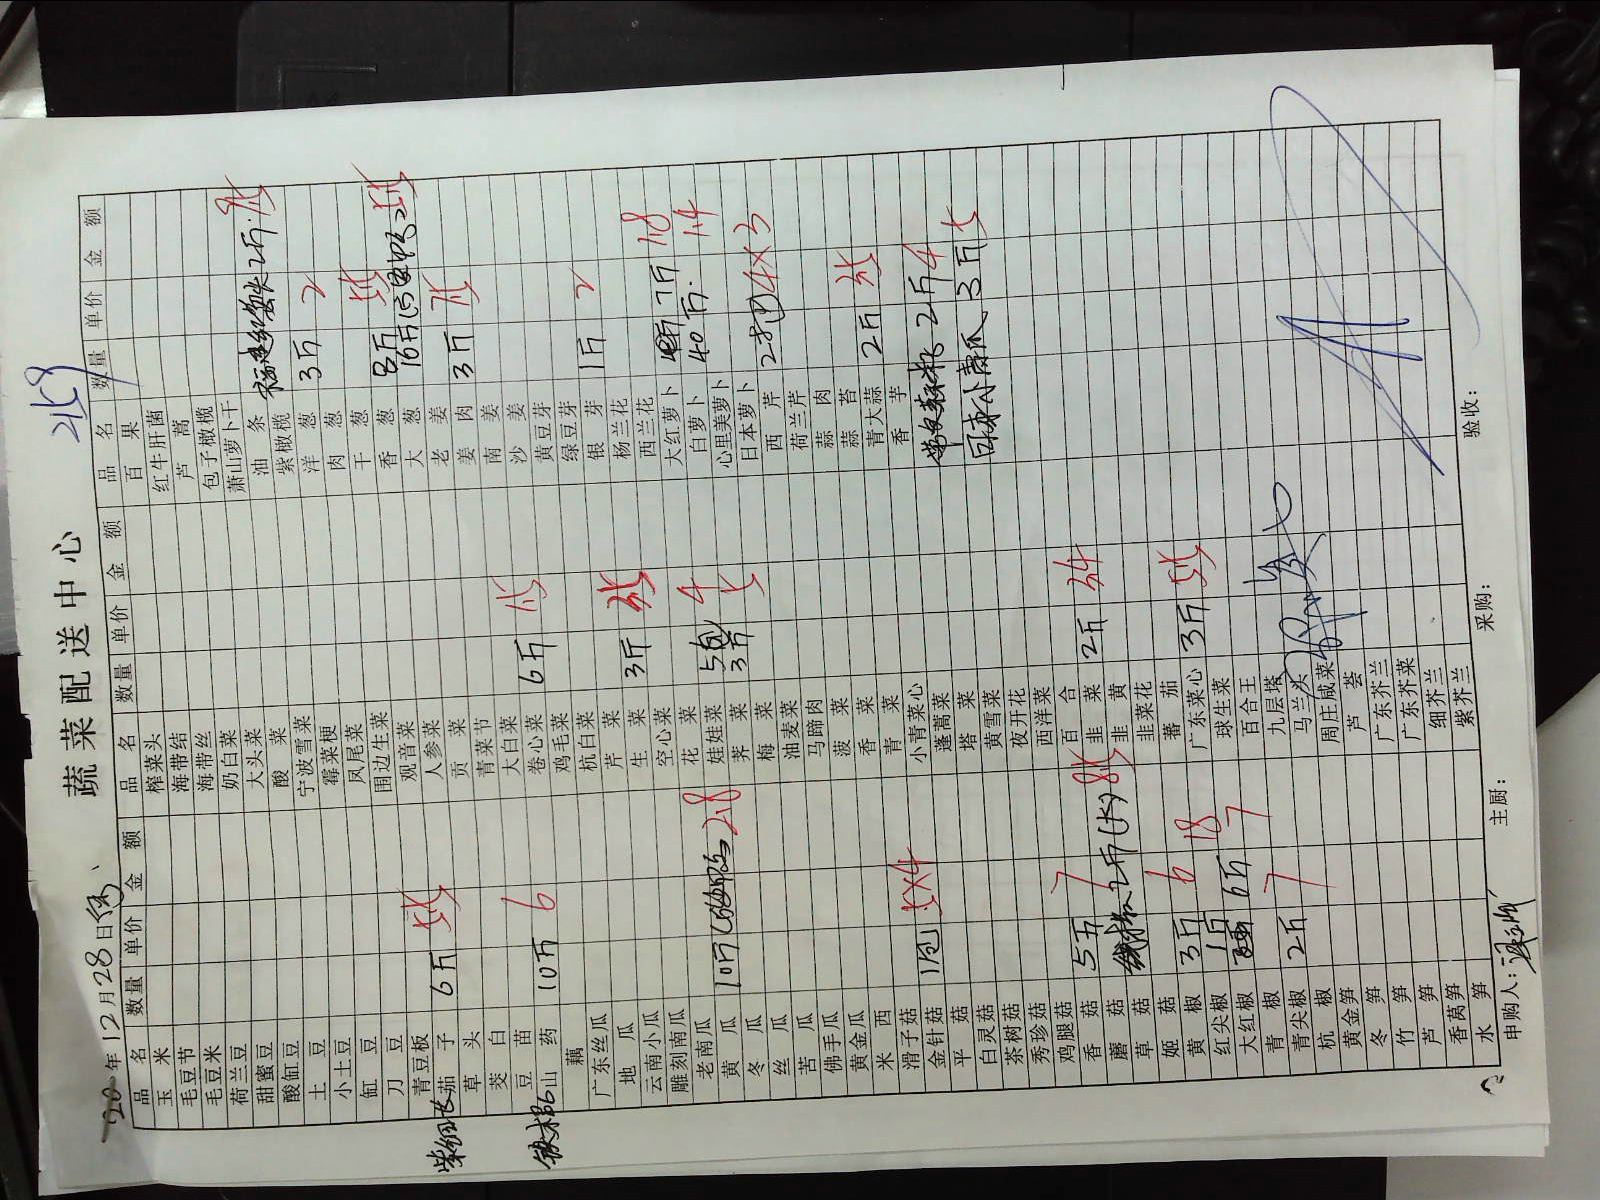 蔬菜配送中心
年12月28日
品名 数量 单价 金额 品名 数量 单价 金额 品名 数量 单价 金额
玉米 榨菜头 百果
毛豆节 海带结 红牛肝菌
毛豆米 海带丝 芦蒿
荷兰豆 奶白菜 包子橄榄
甜蜜豆 大头菜 萧山萝卜干
酸缸豆 酸菜 油条 2斤
土豆 宁波雪菜 紫橄榄
小土豆 霉菜梗 洋葱 3斤 2
缸豆 凤尾菜 肉葱
刀豆 围边生菜 干葱
青豆板 观音菜 香葱 8斤
茄子 6斤 人参菜 大葱 10斤
草头 贡菜 老姜 3斤
茭白 青菜节 姜肉
豆苗 大白菜 南姜
山药 10斤 6 卷心菜 6斤 沙姜
藕 鸡毛菜 黄豆芽
广东丝瓜 杭白菜 绿豆芽
地瓜 芹菜 银芽 1斤 2
云南小瓜 生菜 3斤 杨兰花
雕刻南瓜 空心菜 西兰花
老南瓜 花菜 大红萝卜 7斤 1.8
黄瓜 10斤 2.8 娃娃菜 5包 4 白萝卜 40斤 1.4
冬瓜 荠菜 3斤 心里美萝卜
丝瓜 梅菜 日本萝卜
苦瓜 油麦菜 西芹 4×3
佛手瓜 马蹄肉 荷兰芹
黄金瓜 菠菜 蒜肉
米西 香菜 蒜苔
滑子菇 青菜 青大蒜 2斤
金针菇 1包 5×4 小青菜心 香芋
平菇 蓬蒿菜 2斤 4
白灵菇 塔菜 日本小南瓜 3斤
茶树菇 黄雪菜
秀珍菇 夜开花
鸡腿菇 西洋菜
香菇 5斤 7 百合
蘑菇 2斤 韭菜 2斤 3.4
草菇 韭黄
姬菇 韭菜花
黄椒 3斤 6 番茄
红尖椒 1斤 18 广东菜心 3斤
大红椒 6斤 7 球生菜
青椒 百合王
青尖椒 2斤 7 九层塔
杭椒 马兰头
黄金笋 周庄咸菜
冬笋 芦荟
竹笋 广东芥兰
芦笋 广东芥菜
香莴笋 细芥兰
水笋 紫芥兰
申购人： 主厨： 采购： 验收：